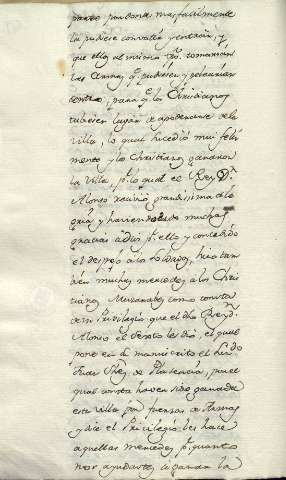 parte por donde mas facilmente
la pudiese convatir, y entrar, y
que ellos al mismo tpo. tomarian
las Armas q.e pudiesen y pelearian
dentro, para q.e los Christianos
tubiesen lugar de apoderarse de la
Villa, lo qual sucedió mui feliz
mente y los Christianos ganaron
la Villa, p.r lo qual el Rey D.n
Alonso recivió grandisima ale
gria, y haviendo dado muchas
gracias á Dios p.r ello, y concedido
el despojo a los soldados, hizo tam
bien muchas mercedes a los Chris
tianos Muzarabes, como consta
de un Privilegio que el dho Rey D.n
Alonso el Sexto les dió, el qual
pone en su manuscrito el
Frai de Plasencia, por el
qual consta haver sido ganada
esta Villa por fuerza de Armas
y dice el Privilegio les hace
aquellas mercedes p.r quanto
nos ayudasteis a ganar la